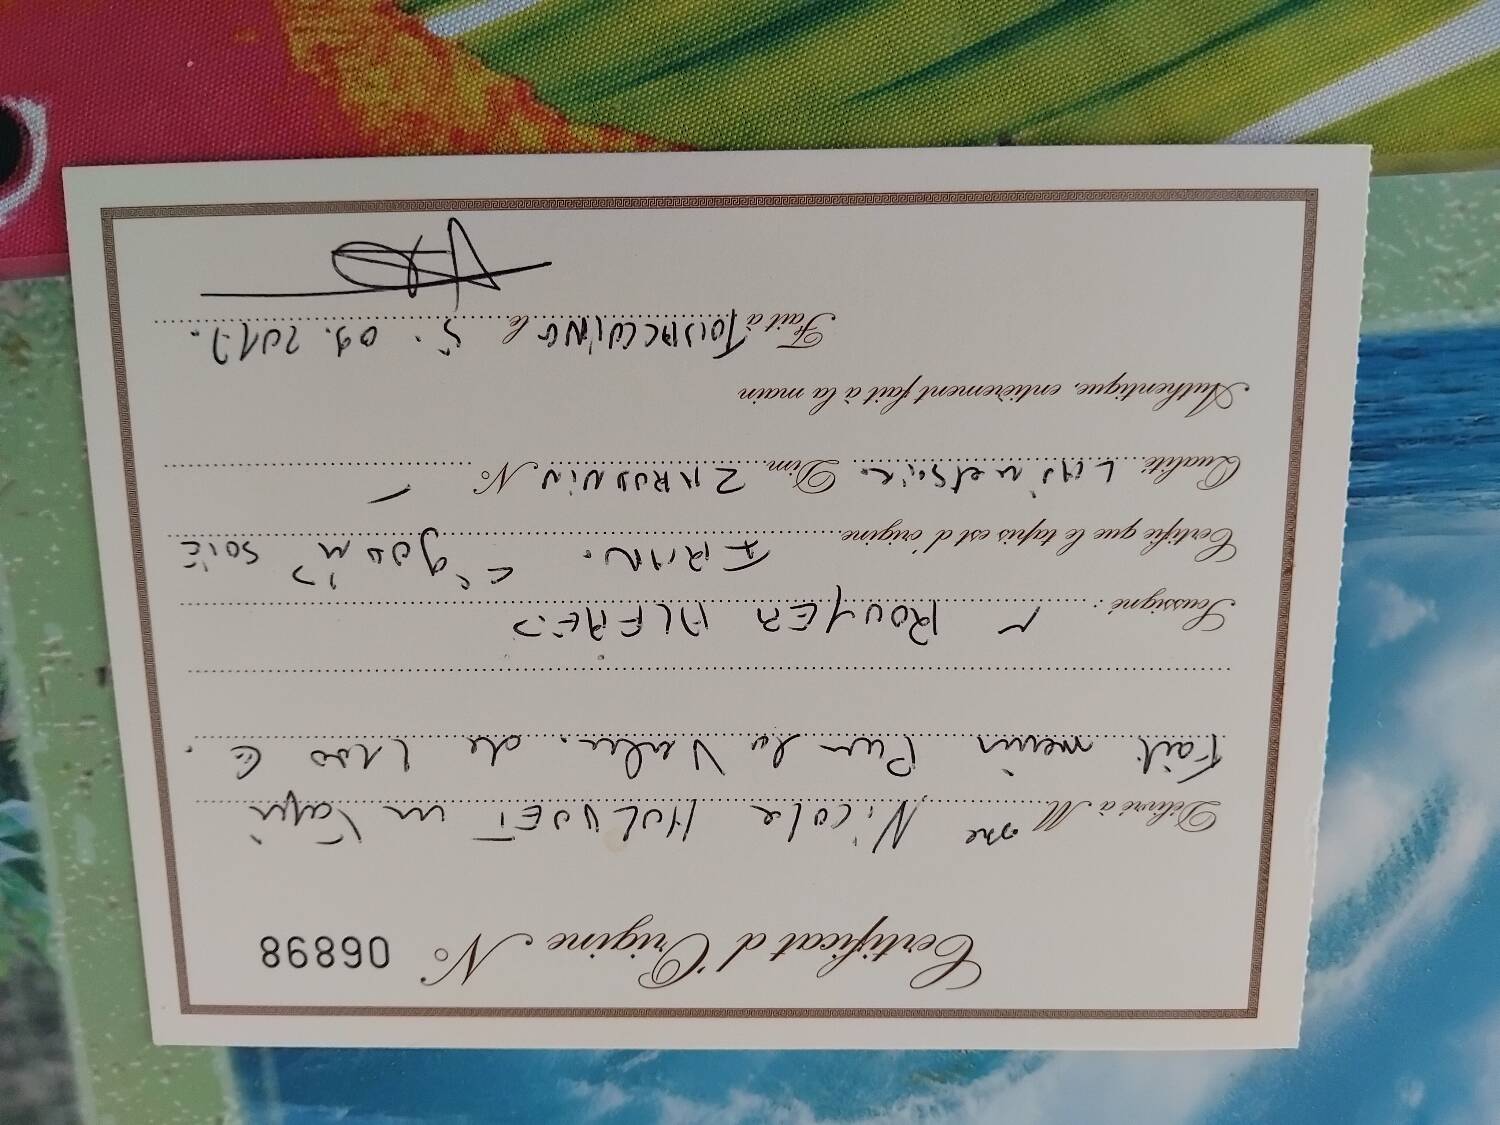 Certificat d'Origine N° 06898
Délivré à Mme Nicole HOLVOET un Tapis
Fait main Pour la Valeur de €.
Soussigné : ROUYER ALFRED
Certifie que le tapis est d'origine IRAN. soie
Qualité Dim. N°
Authentique, entièrement fait à la main
Fait à TOURCOING le 5. 09. 2017.